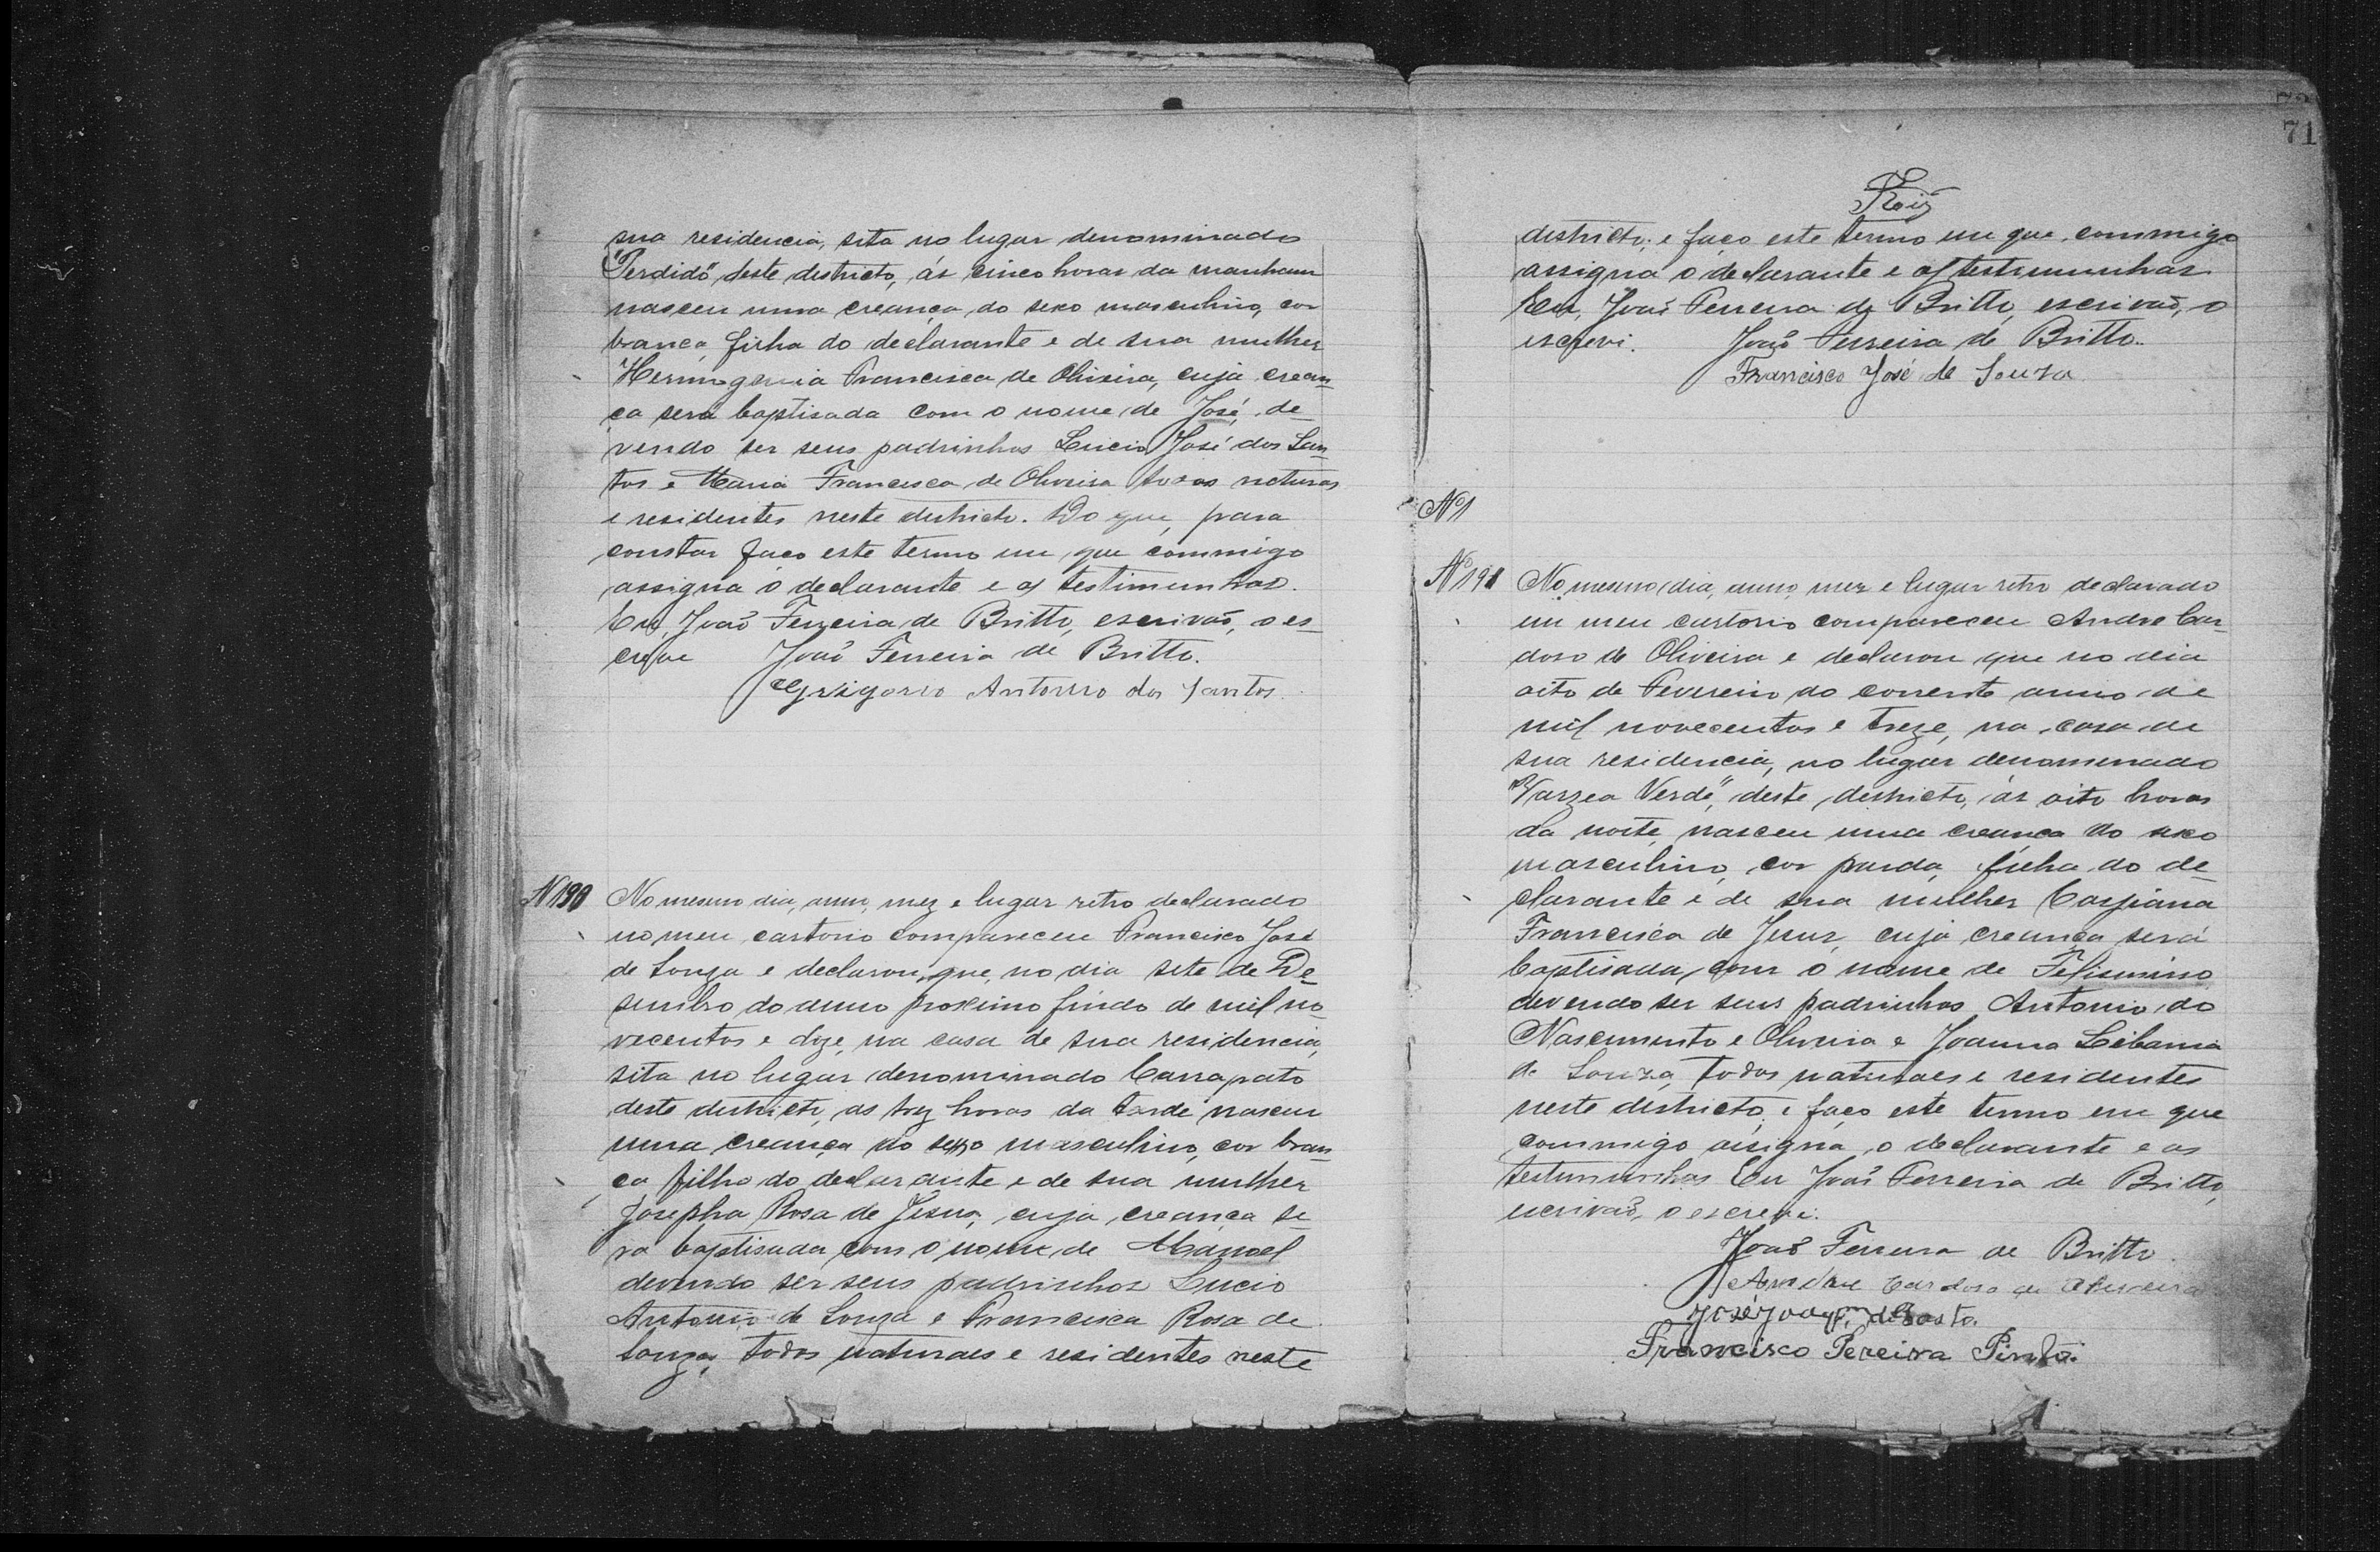 sua residencia, sita no lugar denominado
"Perdido", deste districto, ás cinco horas da manham
nasceu uma creança do sexo masculino, cor
branca, filha do declarante e de sua mulher
Hermogenia Francisca de Oliveira, cuja crean-
ça será baptisada com o nome de José, de-
vendo ser seus padrinhos Lucio José dos San-
tos e Maria Francisca de Oliveira todos naturaes
e residentes neste districto. Do que, para
constar faço este termo em que commigo
assigna o declarante e as testimunhas.
Eu, João Ferreira de Britto, escrivão, o es-
crevi João Ferreira de Britto.
Grigorio Antonio dos Santos.
N 190 No mesmo dia, anno, mez e lugar retro declarado
no meu cartorio compareceu Francisco José
de Souza e declarou, que, no dia sete de De-
sembro do anno proximo findo de mil no-
vecentos e doze, na casa de sua residencia,
sita no lugar denominado Carrapato
deste districto, as trez horas da tarde nasceu
uma creança do sexo masculino, cor bran-
ca filho do declarante e de sua mulher
Josepha Rosa de Jesus, cuja creança se-
rá baptisada com o nome de Manoel
devendo ser seus padrinhos Lucio
Antonio de Souza e Francisca Rosa de
Souza, todos naturaes e residentes neste
71
districto; e faço este termo em que commigo
assigna o declarante e as testemunhas.
Eu, João Ferreira de Britto, escrivão, o
escrevi. João Ferreira de Britto.
Francisco José de Souza
Nº1
Nº 191 No mesmo dia, anno, mez e lugar retro declarado
em meu cartorio compareceu Andre Car-
doso de Oliveira e declarou que no dia
oito de Fevereiro do corrente anno de
mil novecentos e treze, na casa de
sua residencia, no lugar denomenado
"Varzea Verde", deste districto, ás oito horas
da noite, nasceu uma creança do sexo
masculino, cor parda, filha do de-
clarante e de sua mulher Cassiana
Francisca de Jesus, cuja creança será
baptisada, com o nome de Felismino
devendo ser seus padrinhos Antonio do
Nascimento e Oliveira e Joanna Libania
de Souza, todos naturaes e residentes
neste districto; e faço este termo em que
commigo assigna, o declarante e as
testimunhas Eu João Ferreira de Britto,
escrivão, o escrevi.
João Ferreira de Britto.
Andre Cardoso de Oliveira
José Joaqm da Costa.
Francisco Pereira Pinto.